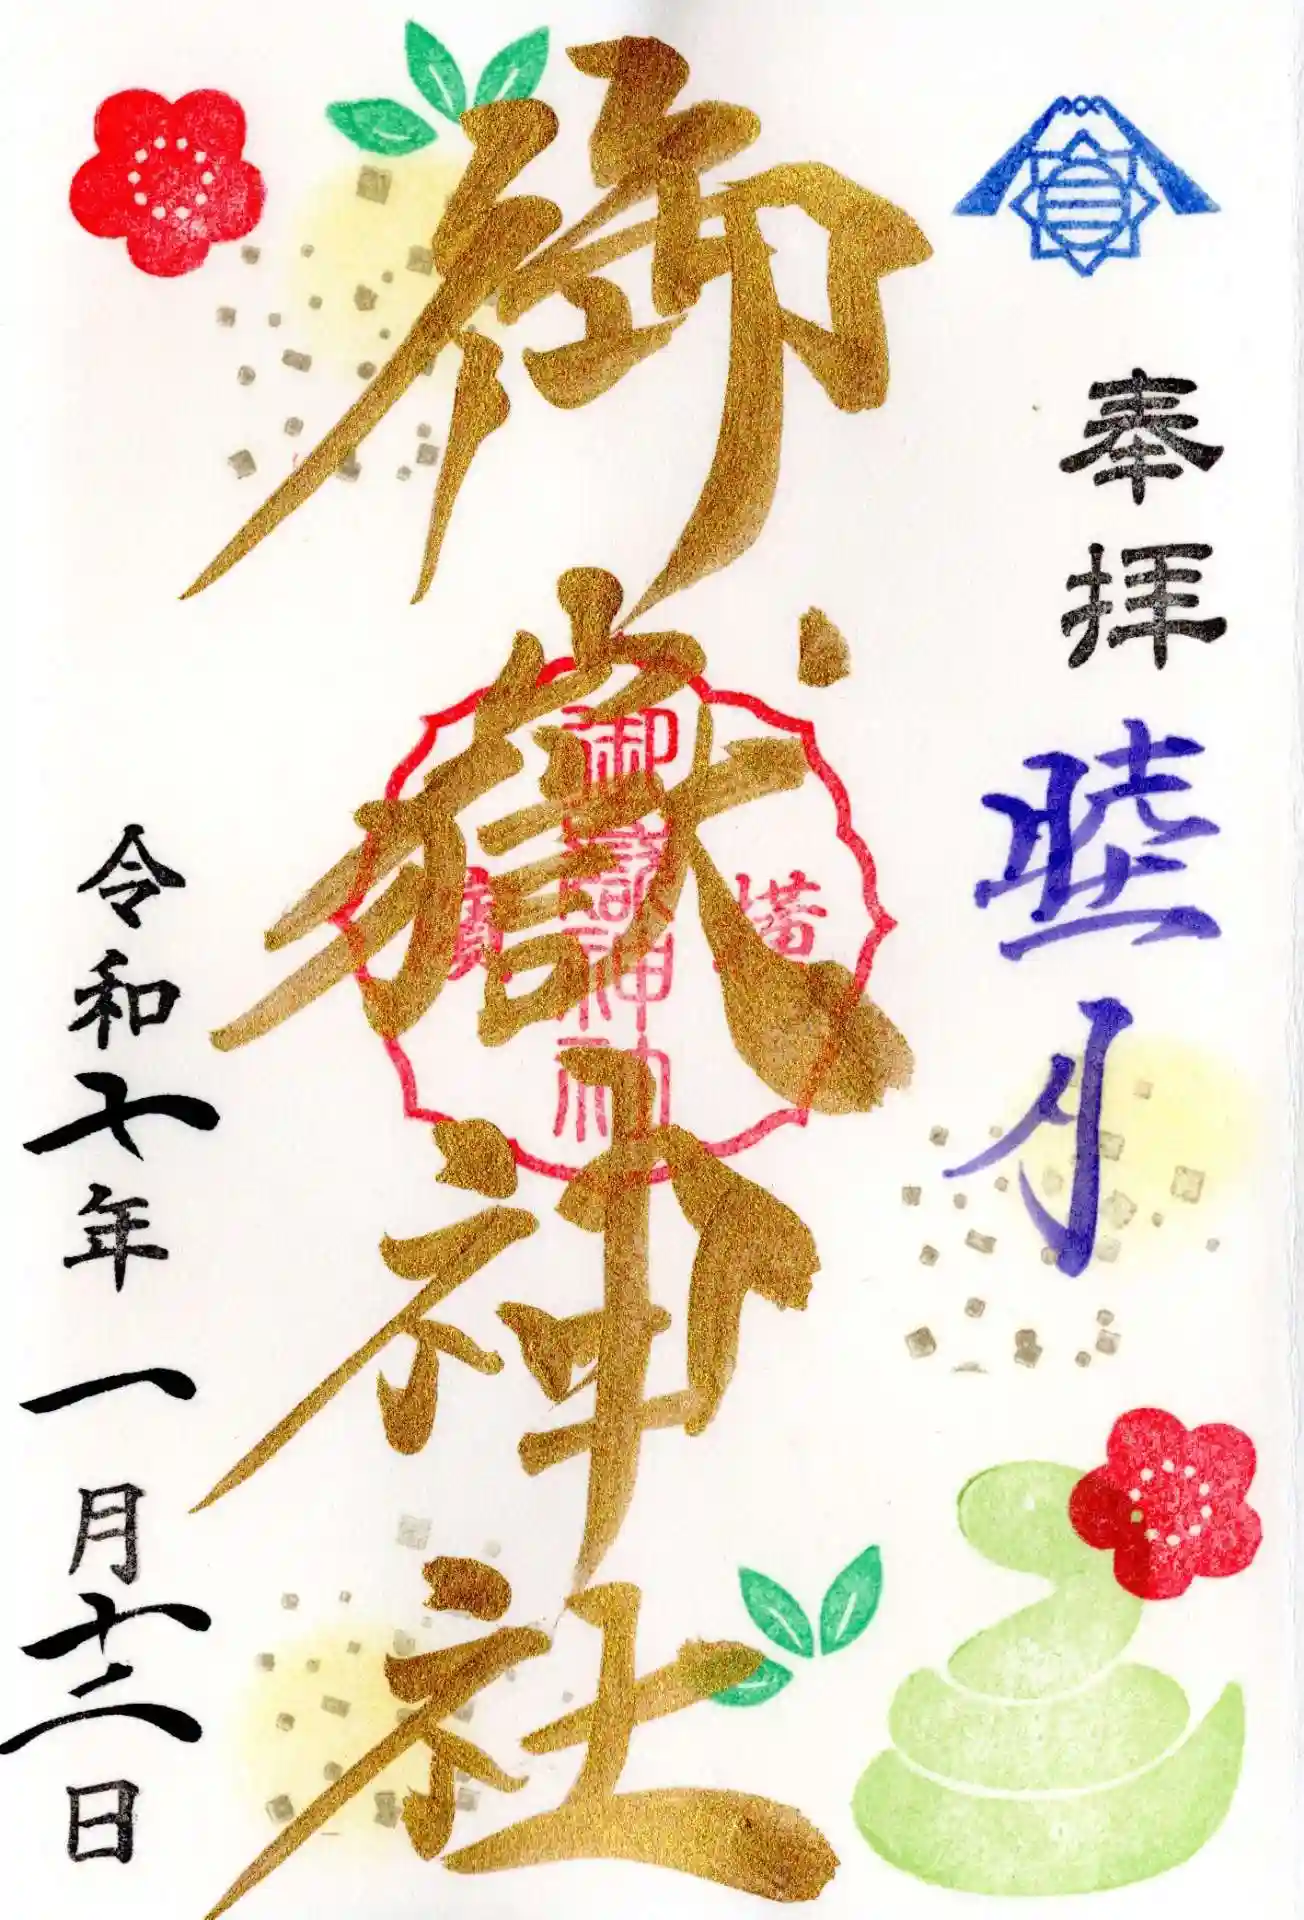 奉拝
睦月
御嶽神社
寳
御嶽神社
塔
令和七年一月十二日